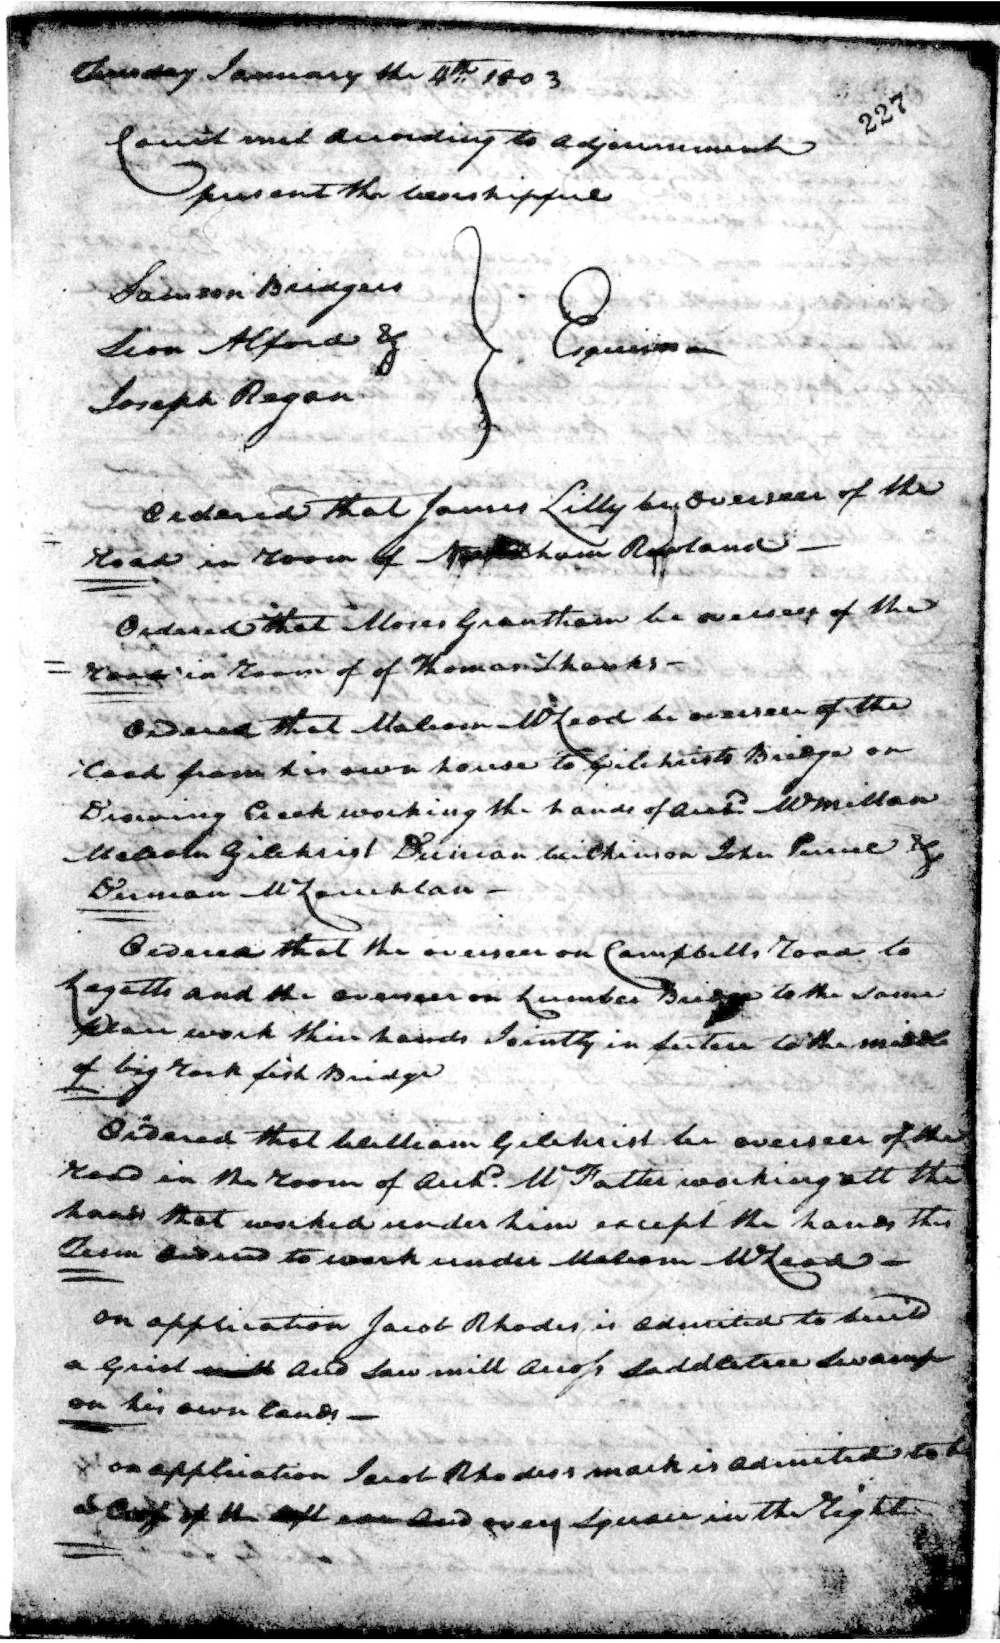 Tuesday January the 4th 1803
227
Court met according to adjournment
present the worshipful
Samson Bridgers
Sion Alford &
Joseph Regan
Esquires
Ordered that James Lilly be overseer of the
road in room of Rowland —
Ordered that Moses Grantham be overseer of the
road in room of of Thomas Thawks —
Ordered that Malcom McLeod be overseer of the
Road from his own house to Gilchrists Bridge on
Drowning Creek working the hands of Archd. McMillan
Malcom Gilchrist Duncan Wilkinson John Purcel &
Duncan McLauchlan —
Ordered that the overseer on Campbells road to
Legetts and the overseer on Lumber Bridge to the same
place work their hands Jointly in future to the middle
of big rock fish Bridge
Ordered that William Gilchrist be overseer of the
road in the room of Archd. McFatter working all the
hands that worked under him except the hands this
Term ordered to work under Malcom McLeod —
on application Jacob Rhodes is admited to build
a Grist mill and saw mill across Saddletree Swamp
on his own lands —
on application Jacob Rhodess mark is admited to be
a Crop of the left ear and over Square in the Right